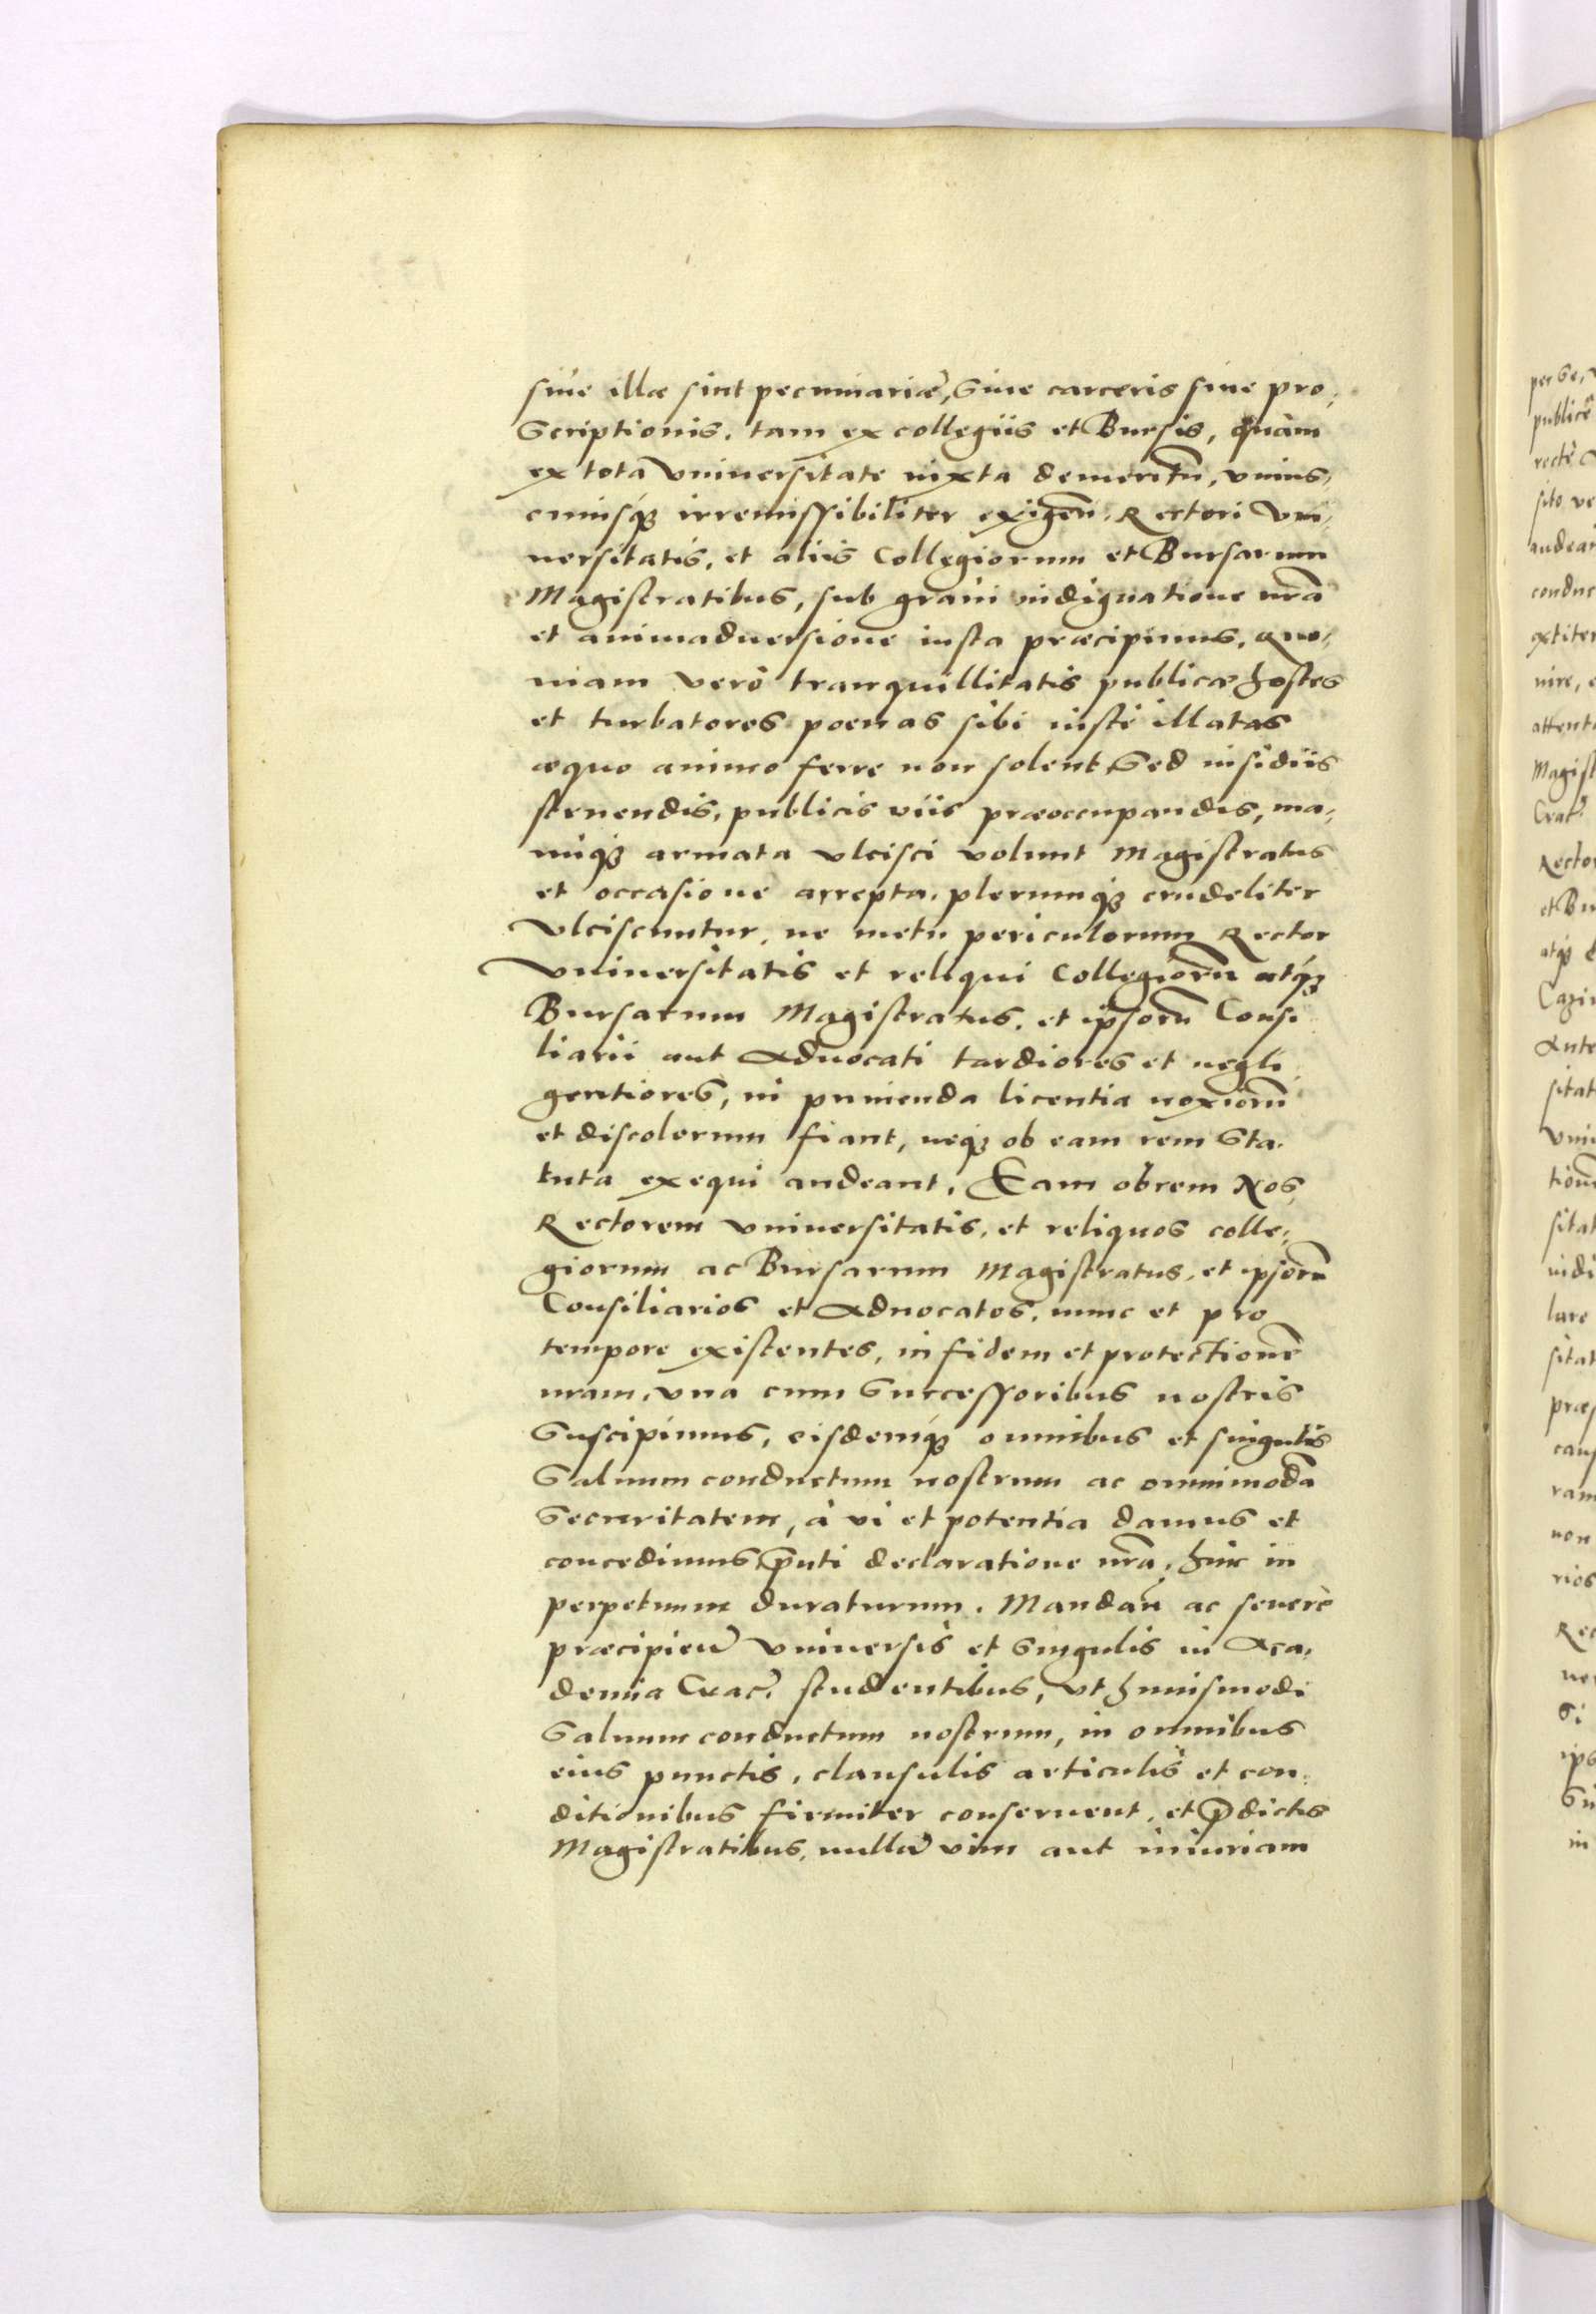 siue illæ sint pecuniariæ, Siue carceris siue pro,
Scriptionis. tam ex collegiis et Bursis, quàm
ex tota Vniuersitate iuxta demeritũ, vnius,
cuiusq́ꝫ irremissibiliter exigen̄. Rectori Vni,
uersitatis, et aliis Collegiorum et Bursarum
Magistratibus, sub graui indignatione nr̄a
et animaduersione iusta præcipimus. Quo,
niam verò tranquillitatis publicæ hostes
et turbatores poenas sibi iustè illatas
æquo animo ferre non solent Sed insidiis
struendis, publicis viis præoccupandis, ma,
nuq́ꝫ armata vlcisci volunt Magistratus
et occasione arrepta, plerumq́ꝫ crudeliter
Vlciscuntur, ne metu periculorum Rector
Vniuersitatis et reliqui Collegiorũ atq́ꝫ
Bursarum Magistratus, et ipsorũ Consi
liarii aut Aduocati tardiores et negli
gentiores, in punienda licentia noxiorũ
et discolorum fiant, neqꝫ ob eam rem Sta,
tuta exequi audeant. Eam obrem Nos,
Rectorem Vniuersitatis, et reliquos colle,
giorum ac Bursarum Magistratus, et ipsorũ
Consiliarios et Aduocatos, nunc et pro
tempore existentes, in fidem et protectionẽ
nram, vna cum Successoribus nostris
Suscipimus, eisdemq́ꝫ omnibus et singulis
Saluum conductum nostrum ac omnimodã
Securitatem, à vi et potentia damus et
concedimus p̄nti declaratione nr̄a, hinc in
perpetuum duraturum. Mandan̄ ac seuerè
præcipien̄ Vniuersis et Singulis in Aca,
demia Crac̄. studentibus, vt huiusmodi
Saluum conductum nostrum, in omnibus
eius punctis, clausulis articulis et con,
ditionibus firmiter conseruent, et p̄dictis
Magistratibus, nullã vim aut iniuriam